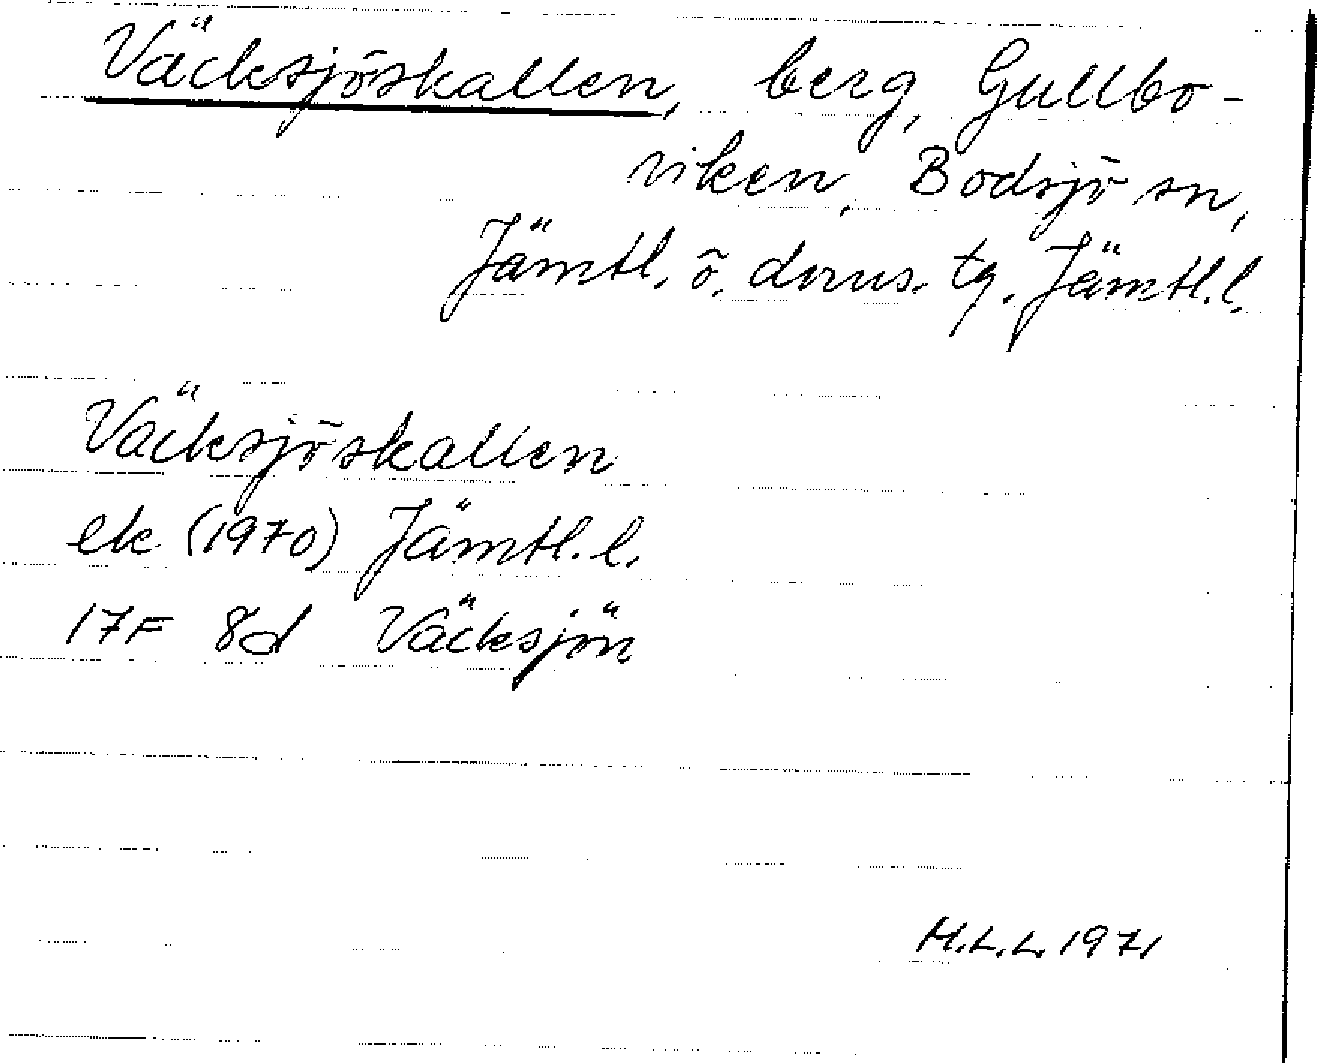 Väcksjöskallen, berg, Gullbo-
viken, Bodsjö sn,
Jämtl. ö. doms. tg. Jämtl. l.
Väcksjöskallen
ek (1970) Jämtl. l.
17F 8d Väcksjön
M.L.L. 1971